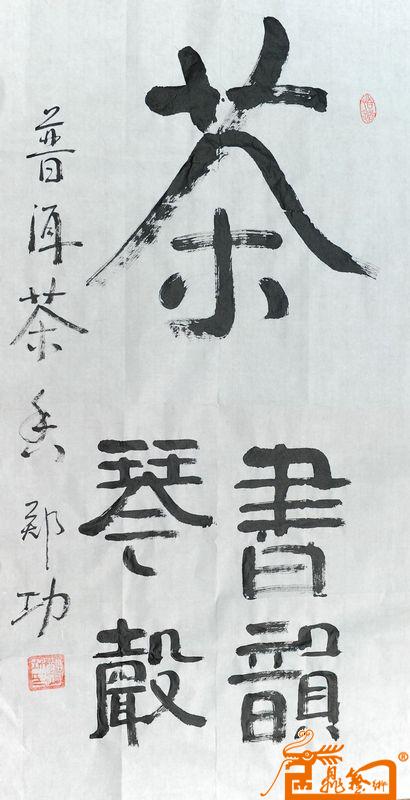 茶
書韻
琴聲
普洱茶香 郑功